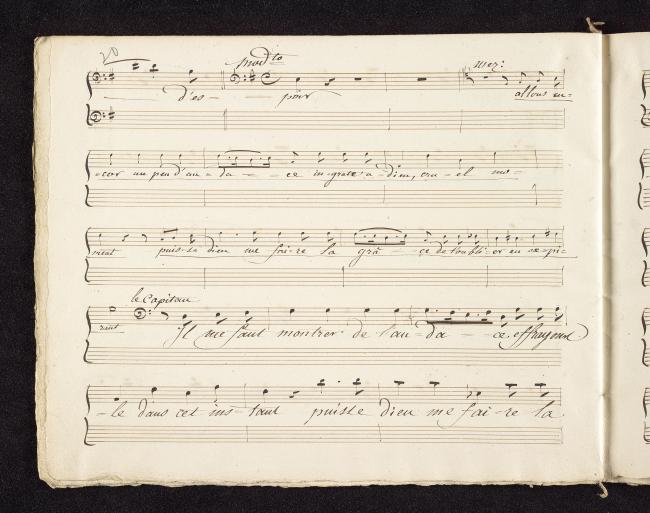 20
modto mez:
d'es- poir allons en=
-cor un peu d'au-da--ce ingrate a-dieu, cru-el mo-
ment puisse dieu me fai-re la grâ-ce de l'oubli-er en expi=
le Capitan
rant Il me faut montrer de l'au-da--ce effrayons
-le dans cet ins-tant puisse dieu me fai-re la